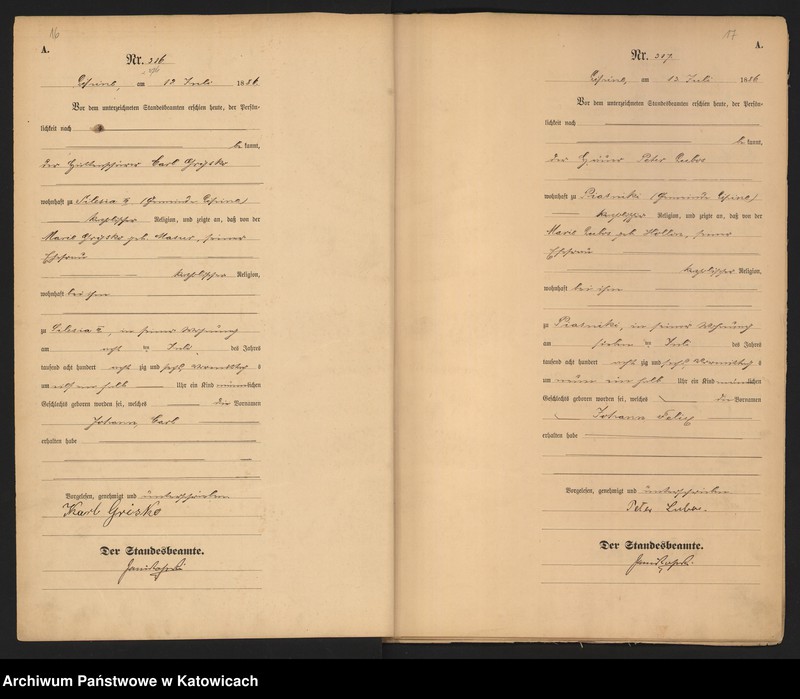 16
A.
Nr. 316
am 12 Juli 1886
Vor dem unterzeichneten Standesbeamten erschien heute, der Persön-
lichkeit nach
be kannt,
der Carl Grysko
wohnhaft zu Silesia (Gemeinde
katholischer Religion, und zeigte an, daß von der
Marie Grysko geb. seiner
Ehefrau
katholischer Religion,
wohnhaft bei ihm
zu Silesia in seiner Wohnung
am acht ten Juli des Jahres
tausend acht hundert acht zig und sechs Vormittag s
um Uhr ein Kind männlichen
Geschlechts geboren worden sei, welches die Vornamen
Johann Carl
erhalten habe
Vorgelesen, genehmigt und unterschrieben
Karl Grisko
Der Standesbeamte.
17
A.
Nr. 317
am 13 Juli 1886
Vor dem unterzeichneten Standesbeamten erschien heute, der Persön-
lichkeit nach
be kannt,
der Häuer Peter Lubos
wohnhaft zu Piasniki (Gemeinde
katholischer Religion, und zeigte an, daß von der
Marie Lubos geb. seiner
Ehefrau
katholischer Religion,
wohnhaft bei ihm
zu Piasniki, in seiner Wohnung
am sieben ten Juli des Jahres
tausend acht hundert acht zig und sechs Vormittag s
um neun ein halb Uhr ein Kind männlichen
Geschlechts geboren worden sei, welches die Vornamen
Johann Felix
erhalten habe
Vorgelesen, genehmigt und unterschrieben
Peter Lubos.
Der Standesbeamte.
Archiwum Państwowe w Katowicach